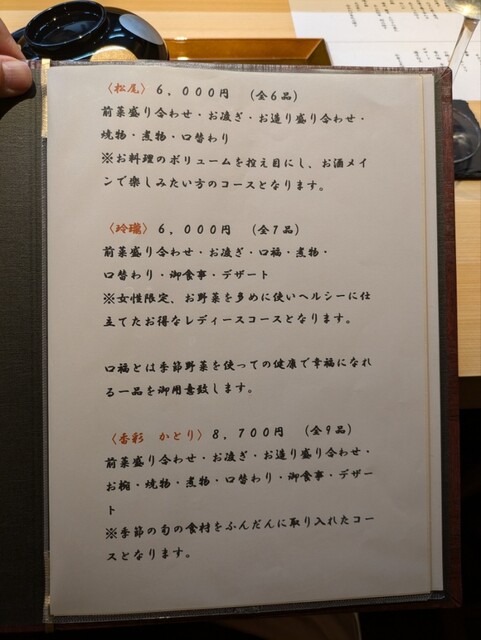 〈松尾〉6,000円　(全6品)
前菜盛り合わせ・お凌ぎ・お造り盛り合わせ・
焼物・煮物・口替わり
※お料理のボリュームを控え目にし、お酒メイ
ンで楽しみたい方のコースとなります。
〈玲瓏〉6,000円　(全7品)
前菜盛り合わせ・お凌ぎ・口福・煮物・
口替わり・御食事・デザート
※女性限定、お野菜を多めに使いヘルシーに仕
立てたお得なレディースコースとなります。
口福とは季節野菜を使っての健康で幸福になれ
る一品を御用意致します。
〈香彩　かとり〉8,700円　(全9品)
前菜盛り合わせ・お凌ぎ・お造り盛り合わせ・
お椀・焼物・煮物・口替わり・御食事・デザー
ト
※季節の旬の食材をふんだんに取り入れたコー
スとなります。